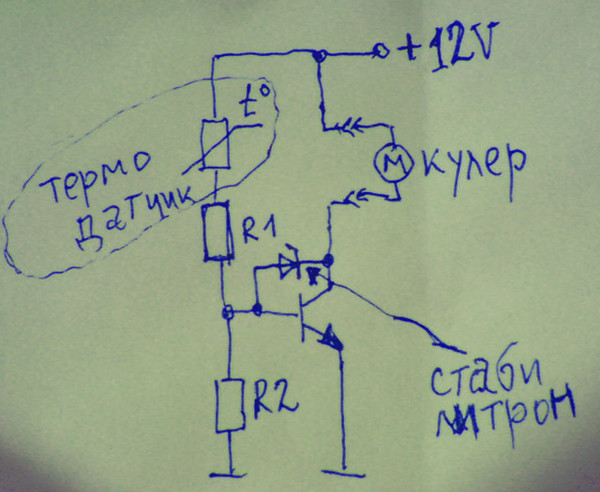 +12V
t°
термо
датчик
M
кулер
R1
R2
стаби
литрон